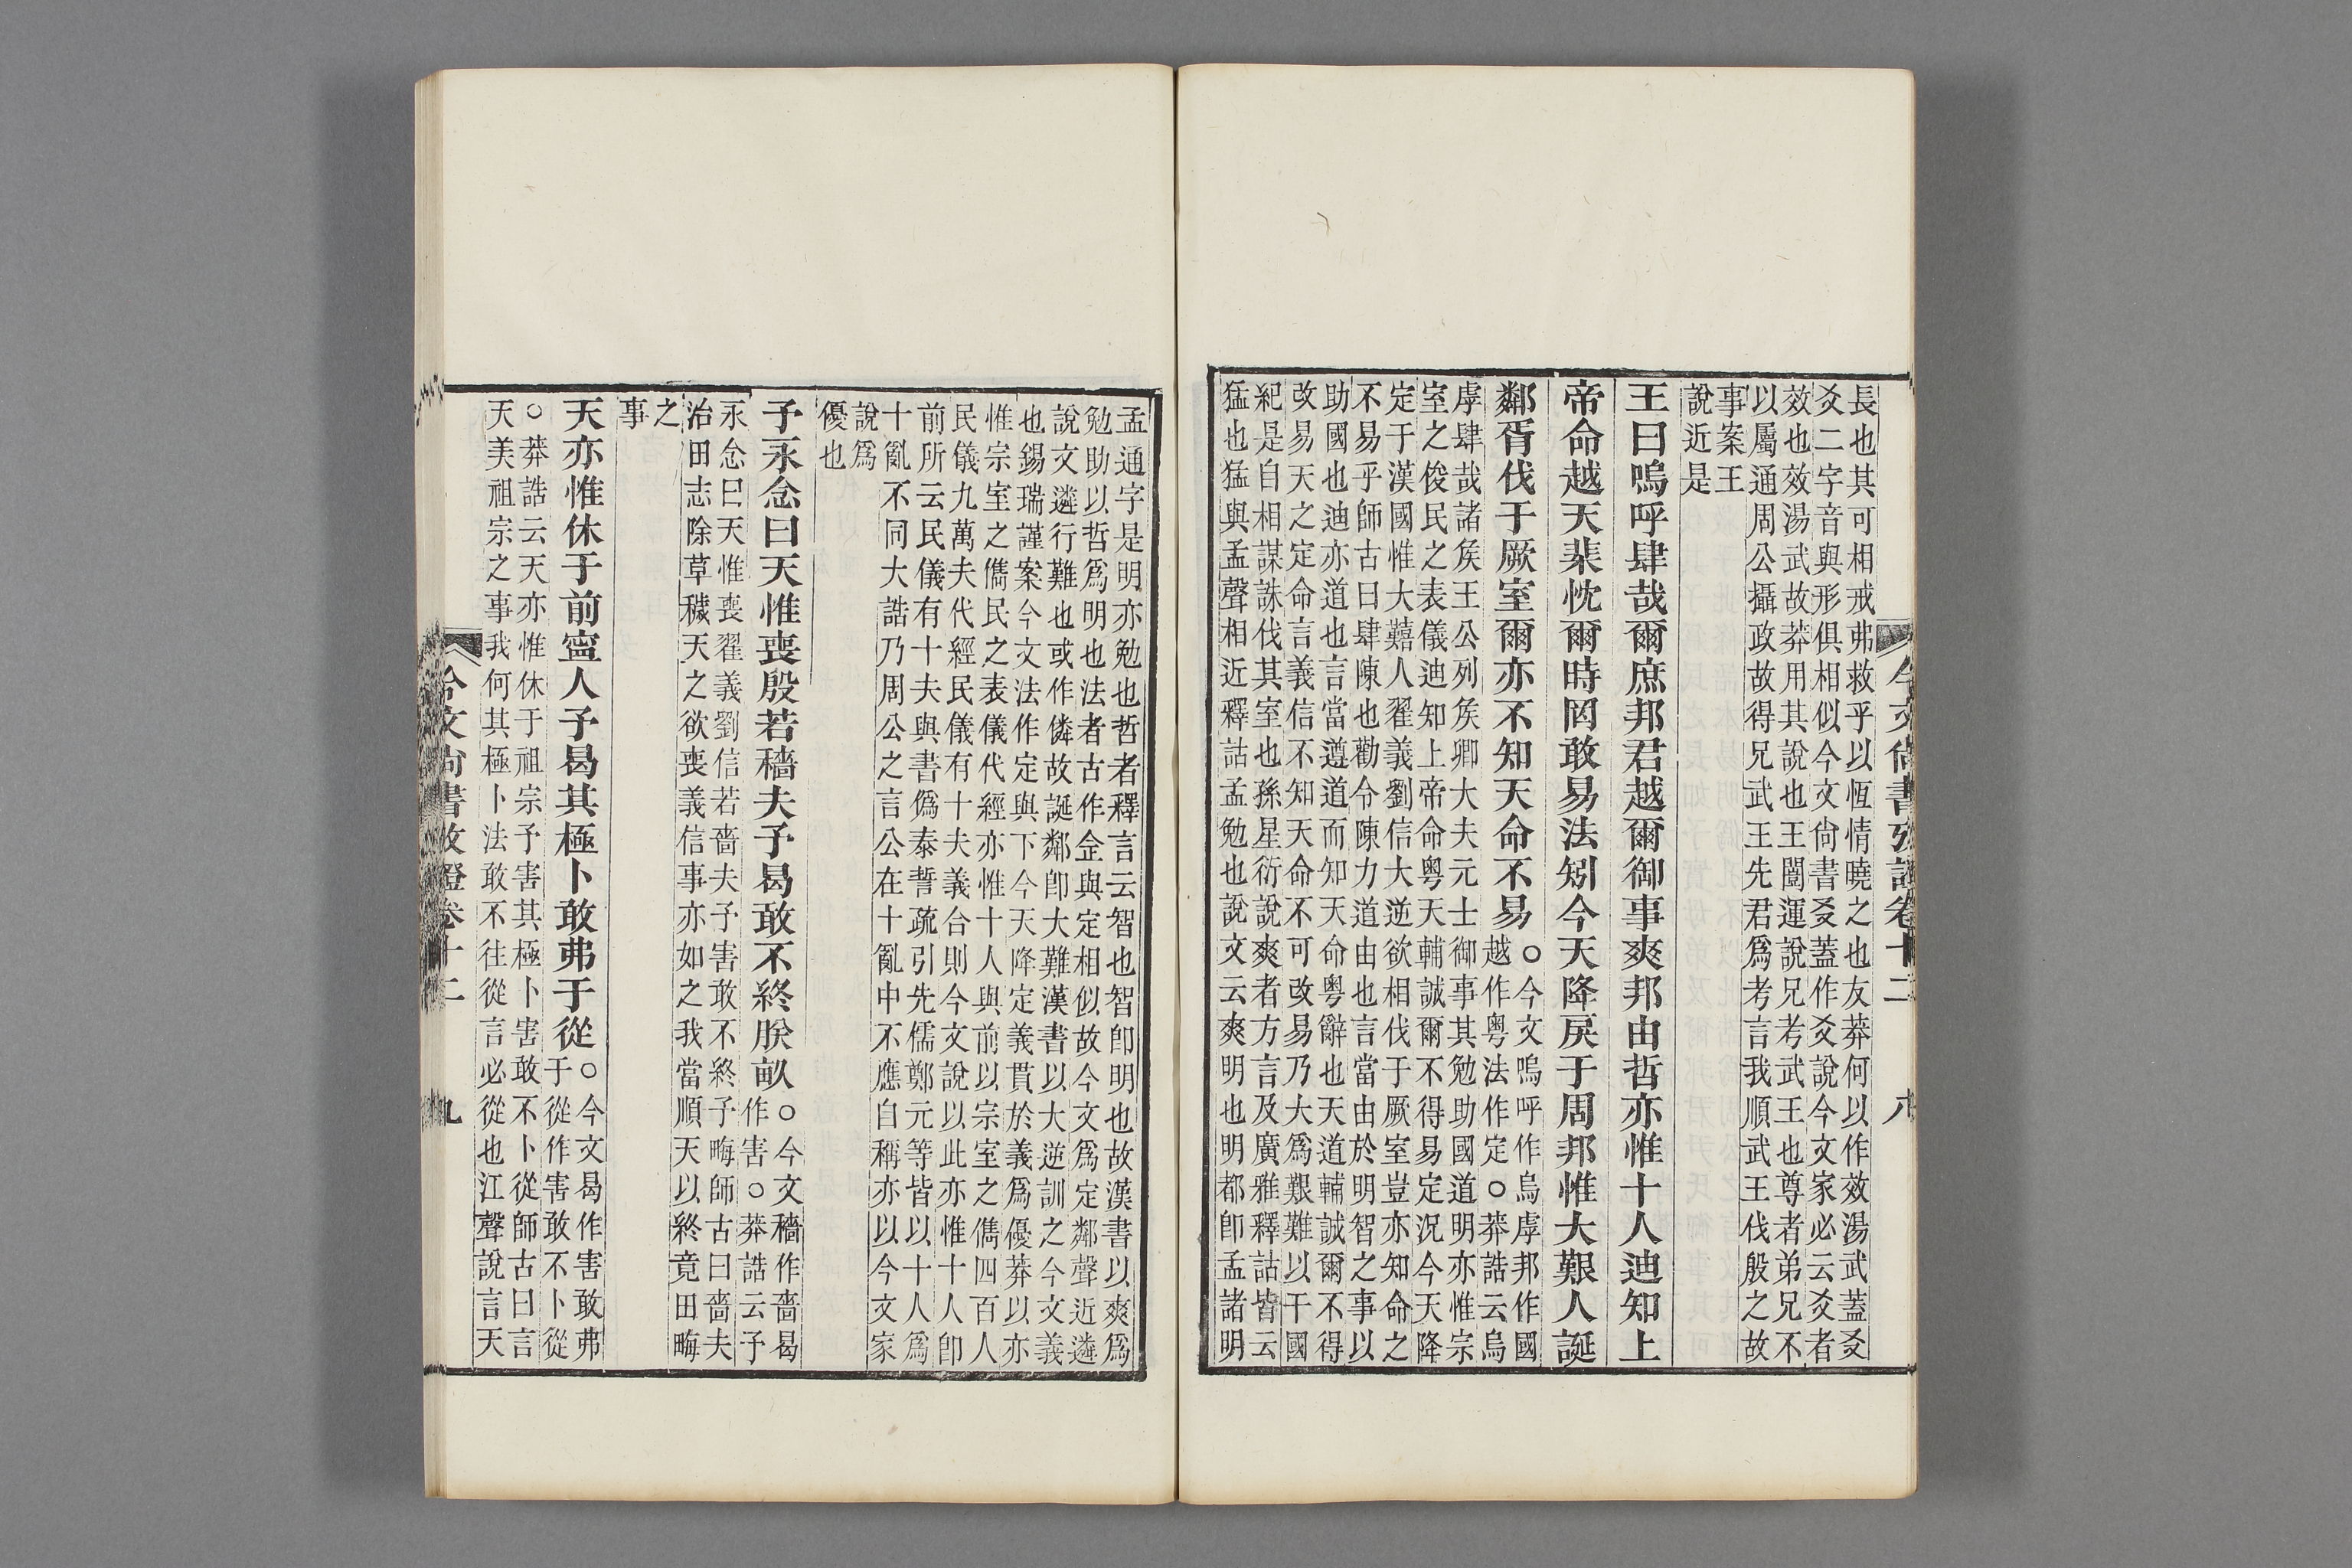 今文尚書攷證卷十二
八
長也其可相戒弗救乎以恆情曉之也友莽何以作效湯武蓋爻
爻二字音與形俱相似今文尙書爻蓋作爻說今文家必云爻者
效也效湯武故莽用其說也王闓運說兄考武王也尊者弟兄不
以屬通周公攝政故得兄武王先君爲考言我順武王伐殷之故
事案王
說近是
王曰嗚呼肆哉爾庶邦君越爾御事爽邦由哲亦惟十人迪知上
帝命越天棐忱爾時罔敢易法矧今天降戾于周邦惟大艱人誕
鄰胥伐于厥室爾亦不知天命不易
○今文嗚呼作烏虖邦作國
越作粤法作定○莽誥云烏
虖肆哉諸矦王公列矦卿大夫元士御事其勉助國道明亦惟宗
室之俊民之表儀迪知上帝命粤天輔誠爾不得易定況今天降
定于漢國惟大囏人翟義劉信大逆欲相伐于厥室豈亦知命之
不易乎師古曰肆陳也勸令陳力道由也言當由於明智之事以
助國也迪亦道也言當遵道而知天命粤辭也天道輔誠爾不得
改易天之定命言義信不知天命不可改易乃大爲艱難以干國
紀是自相謀誅伐其室也孫星衍說爽者方言及廣雅釋詁皆云
猛也猛與孟聲相近釋詁孟勉也說文云爽明也明都卽孟諸明
孟通字是明亦勉也哲者釋言云智也智卽明也故漢書以爽爲
勉助以哲爲明也法者古作佱與定相似故今文爲定鄰聲近遴
說文遴行難也或作僯故誕鄰卽大難漢書以大逆訓之今文義
也錫瑞謹案今文法作定與下今天降定義貫於義爲優莽以亦
惟宗室之儁民之表儀代經亦惟十人與前以宗室之儁四百人
民儀九萬夫代經民儀有十夫義合則今文說以此亦惟十人卽
前所云民儀有十夫與書僞泰誓疏引先儒鄭元等皆以十人爲
十亂不同大誥乃周公之言公在十亂中不應自稱亦以今文家
說爲
優也
予永念曰天惟喪殷若穡夫予曷敢不終朕畝
○今文穡作嗇曷
作害○莽誥云予
永念曰天惟喪翟義劉信若嗇夫予害敢不終予晦師古曰嗇夫
治田志除草穢天之欲喪義信事亦如之我當順天以終竟田晦
之
事
天亦惟休于前寧人予曷其極卜敢弗于從
○今文曷作害敢弗
于從作害敢不卜從
○莽誥云天亦惟休于祖宗予害其極卜害敢不卜從師古曰言
天美祖宗之事我何其極卜法敢不往從言必從也江聲說言天
今文尚書攷證卷十二
九